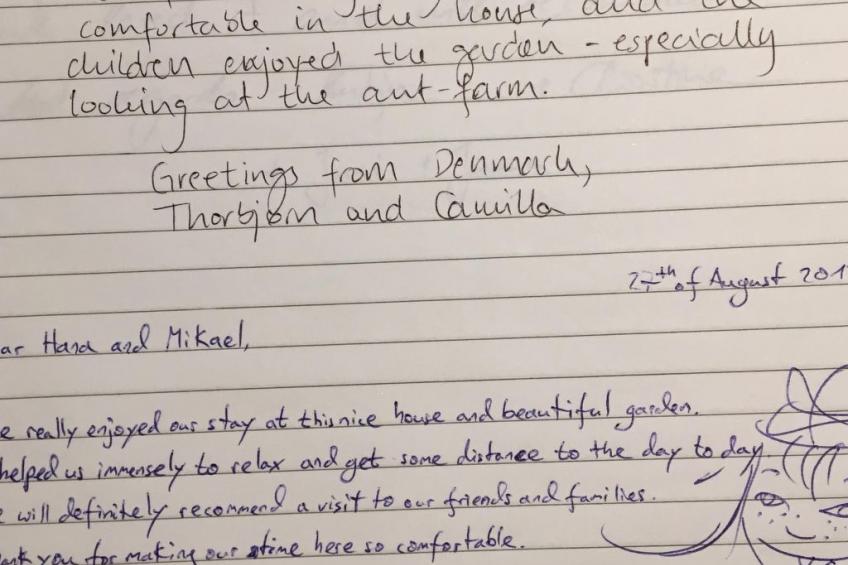 comfortable in the house, and the
children enjoyed the garden - especially
looking at the ant-farm.
Greetings from Denmark,
Thorbjørn and Camilla
27th of August 201
ar Hana and Mikael,
e really enjoyed our stay at this nice house and beautiful garden.
helped us immensely to relax and get some distance to the day to day.
e will definitely recommend a visit to our friends and families.
ank you for making our time here so comfortable.